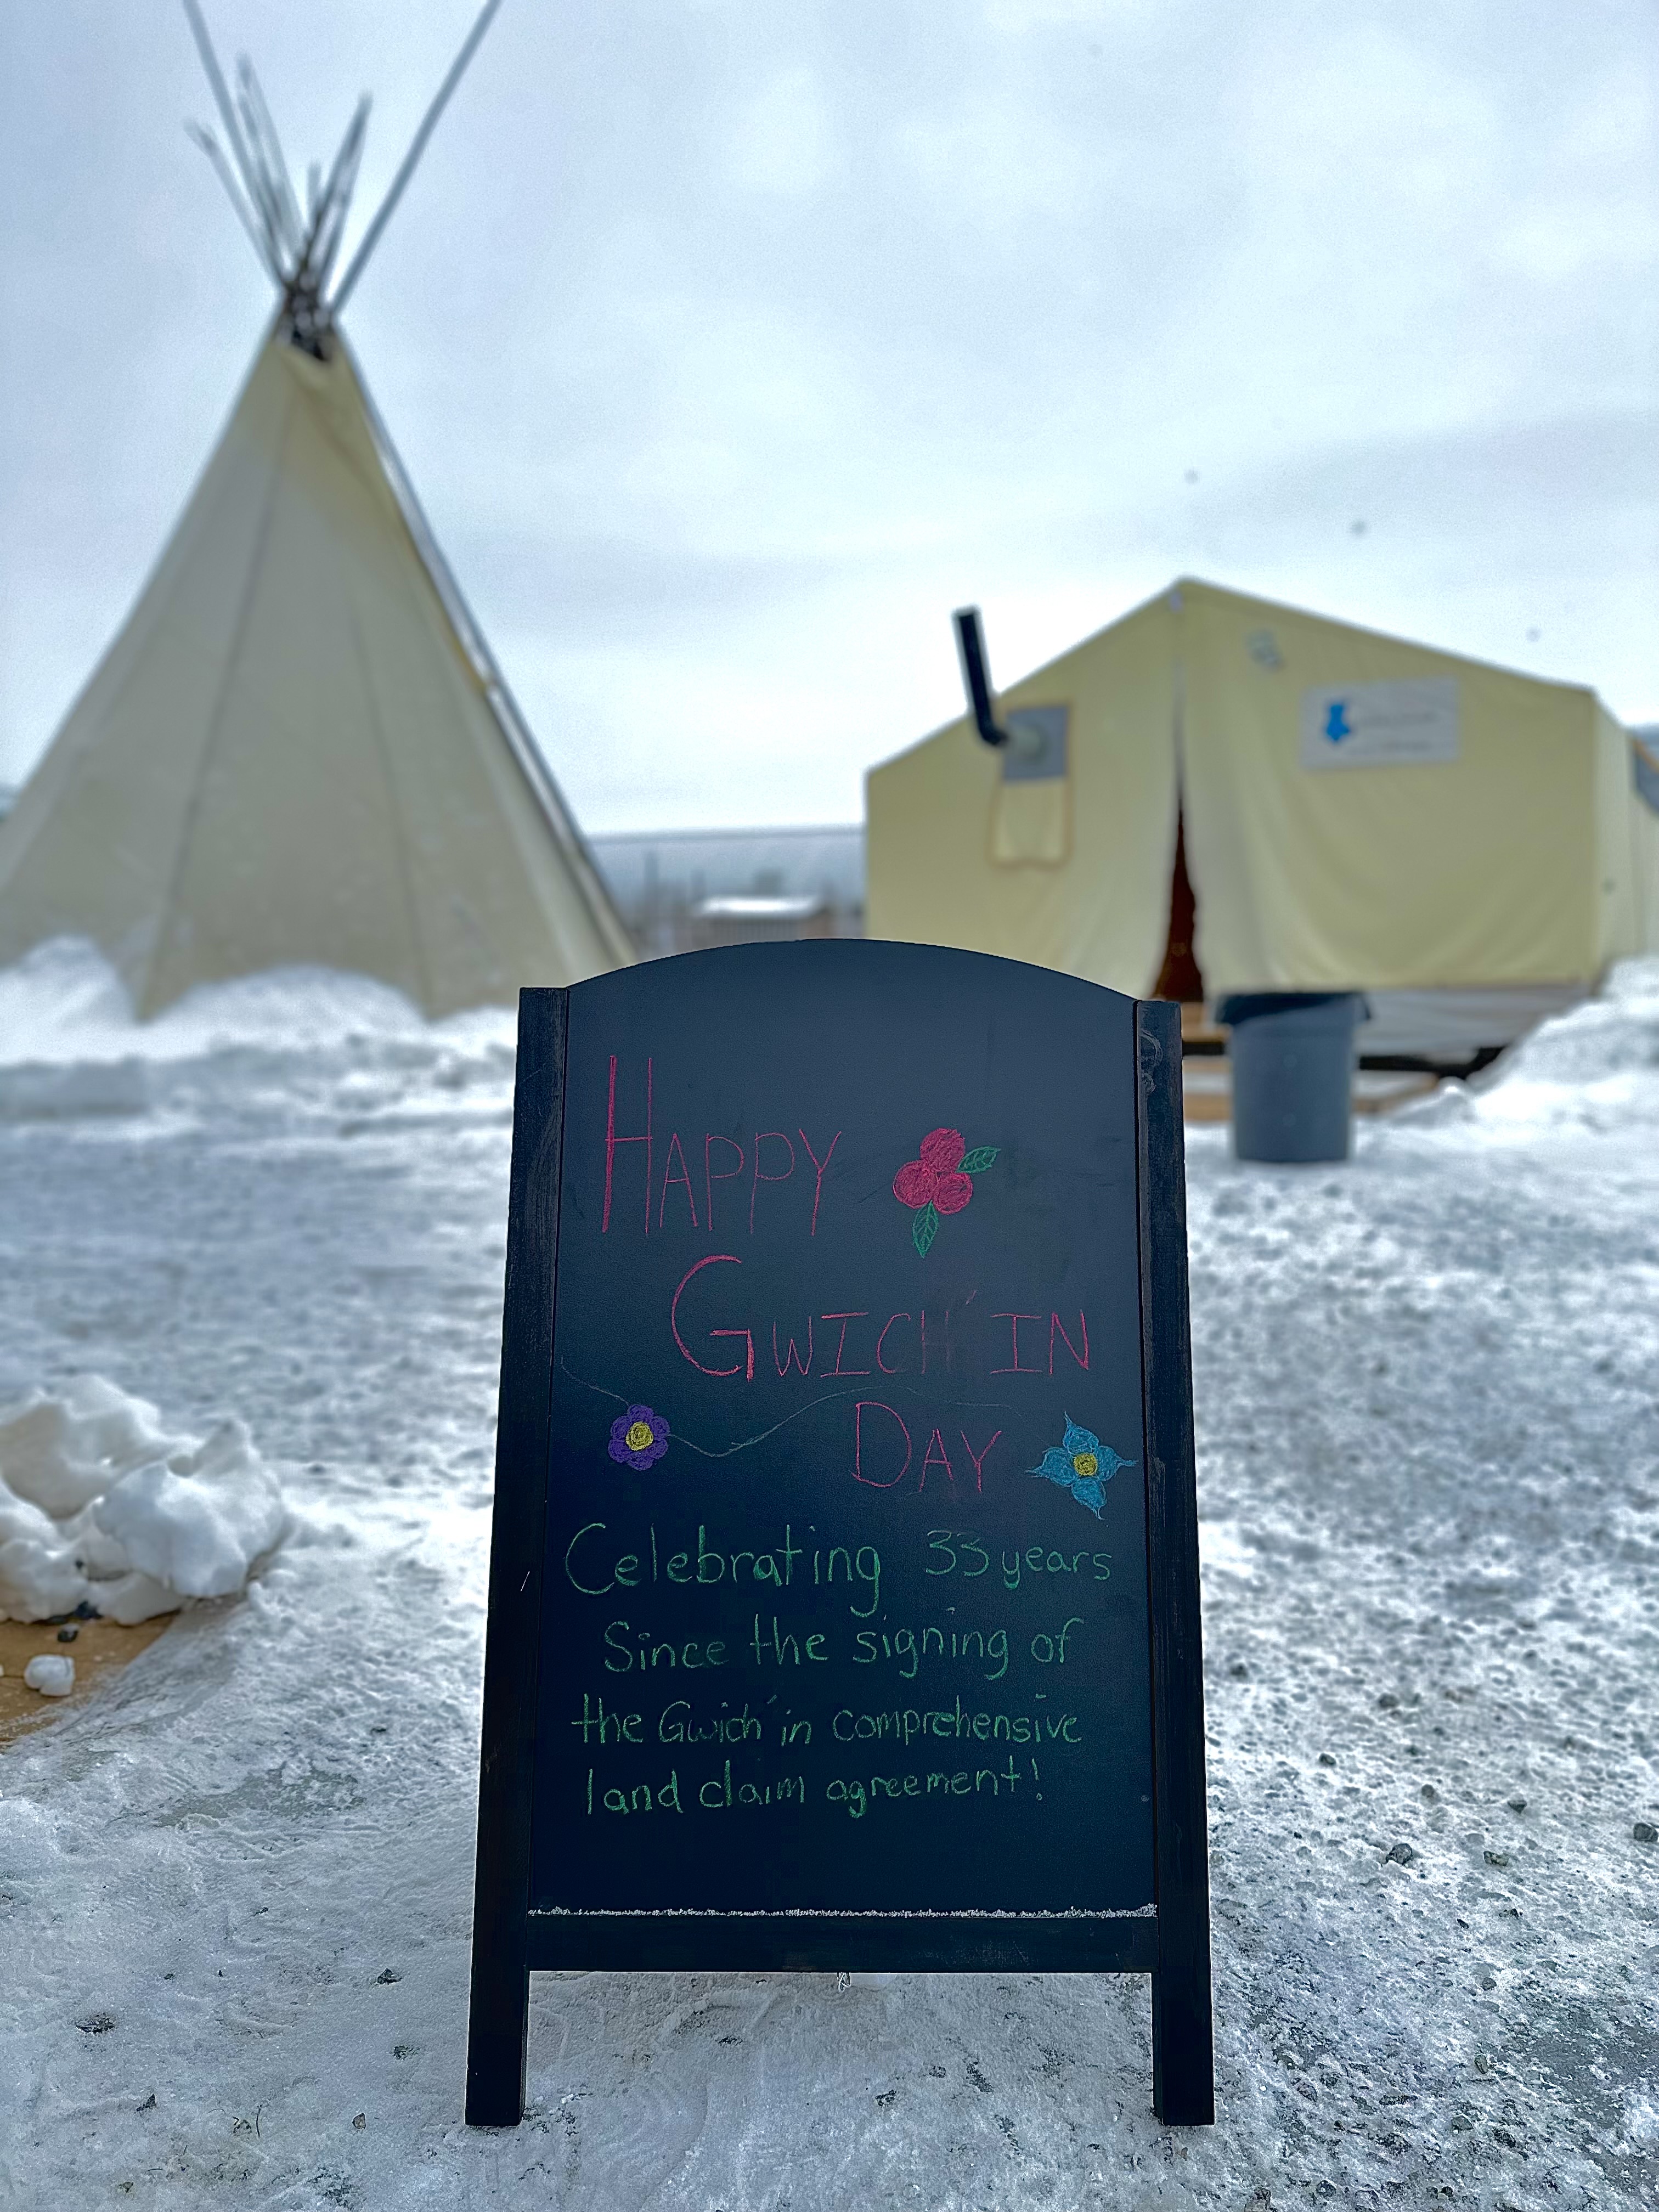 HAPPY
GWICH'IN
DAY
Celebrating 33 years
Since the signing of
the Gwich'in comprehensive
land claim agreement!